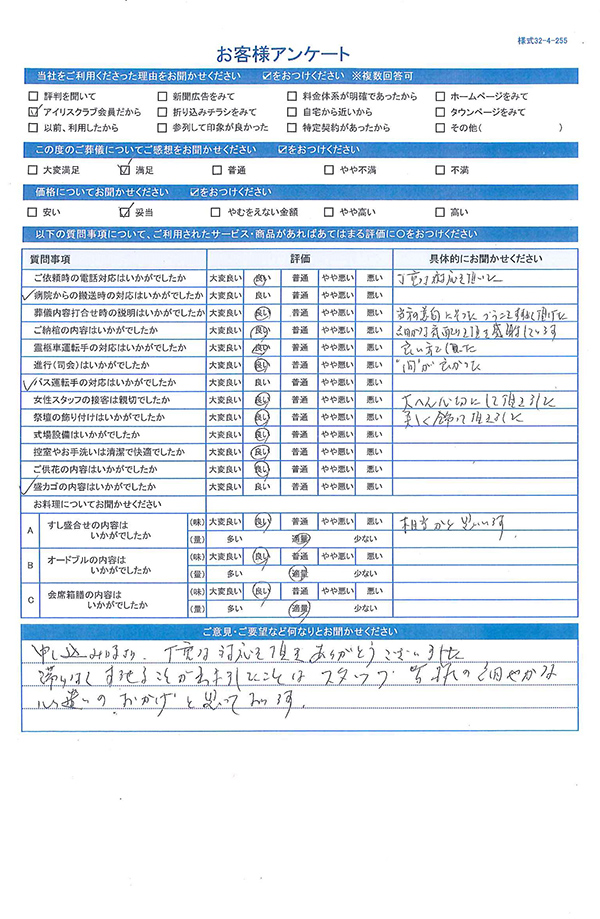 様式32-4-255
お客様アンケート
当社をご利用くださった理由をお聞かせください ☑をおつけください ※複数回答可
□ 評判を聞いて □ 新聞広告をみて □ 料金体系が明確であったから □ ホームページをみて
☑ アイリスクラブ会員だから □ 折り込みチラシをみて □ 自宅から近いから □ タウンページをみて
□ 以前、利用したから □ 参列して印象が良かった □ 特定契約があったから □ その他( )
この度のご葬儀についてご感想をお聞かせください ☑をおつけください
□ 大変満足 ☑ 満足 □ 普通 □ やや不満 □ 不満
価格についてお聞かせください ☑をおつけください
□ 安い ☑ 妥当 □ やむをえない金額 □ やや高い □ 高い
以下の質問事項について、ご利用されたサービス・商品があればあてはまる評価に〇をおつけください
質問事項 評価 具体的にお聞かせください
ご依頼時の電話対応はいかがでしたか 大変良い 良い 普通 やや悪い 悪い 丁寧な対応を頂いた
✓病院からの搬送時の対応はいかがでしたか 大変良い 良い 普通 やや悪い 悪い
葬儀内容打合せ時の説明はいかがでしたか 大変良い 良い 普通 やや悪い 悪い
ご納棺の内容はいかがでしたか 大変良い 良い 普通 やや悪い 悪い 細かな気配りを頂き感謝しています
霊柩車運転手の対応はいかがでしたか 大変良い 良い 普通 やや悪い 悪い 良い方でした
進行(司会)はいかがでしたか 大変良い 良い 普通 やや悪い 悪い "間"が良かった
✓バス運転手の対応はいかがでしたか 大変良い 良い 普通 やや悪い 悪い
女性スタッフの接客は親切でしたか 大変良い 良い 普通 やや悪い 悪い 大へん心切にして頂きました
祭壇の飾り付けはいかがでしたか 大変良い 良い 普通 やや悪い 悪い 美しく飾って頂きました
式場設備はいかがでしたか 大変良い 良い 普通 やや悪い 悪い
控室やお手洗いは清潔で快適でしたか 大変良い 良い 普通 やや悪い 悪い
ご供花の内容はいかがでしたか 大変良い 良い 普通 やや悪い 悪い
✓盛カゴの内容はいかがでしたか 大変良い 良い 普通 やや悪い 悪い
お料理についてお聞かせください
A すし盛合せの内容はいかがでしたか (味) 大変良い 良い 普通 やや悪い 悪い 相当かと思います
(量) 多い 適量 少ない
B オードブルの内容はいかがでしたか (味) 大変良い 良い 普通 やや悪い 悪い
(量) 多い 適量 少ない
C 会席箱膳の内容はいかがでしたか (味) 大変良い 良い 普通 やや悪い 悪い
(量) 多い 適量 少ない
ご意見・ご要望など何なりとお聞かせください
申し込み時より、丁寧な対応を頂きありがとうございました
滞りなくすませることが出来ましたことはスタッフ皆様の細やかな
心遣いのおかげと思っております。